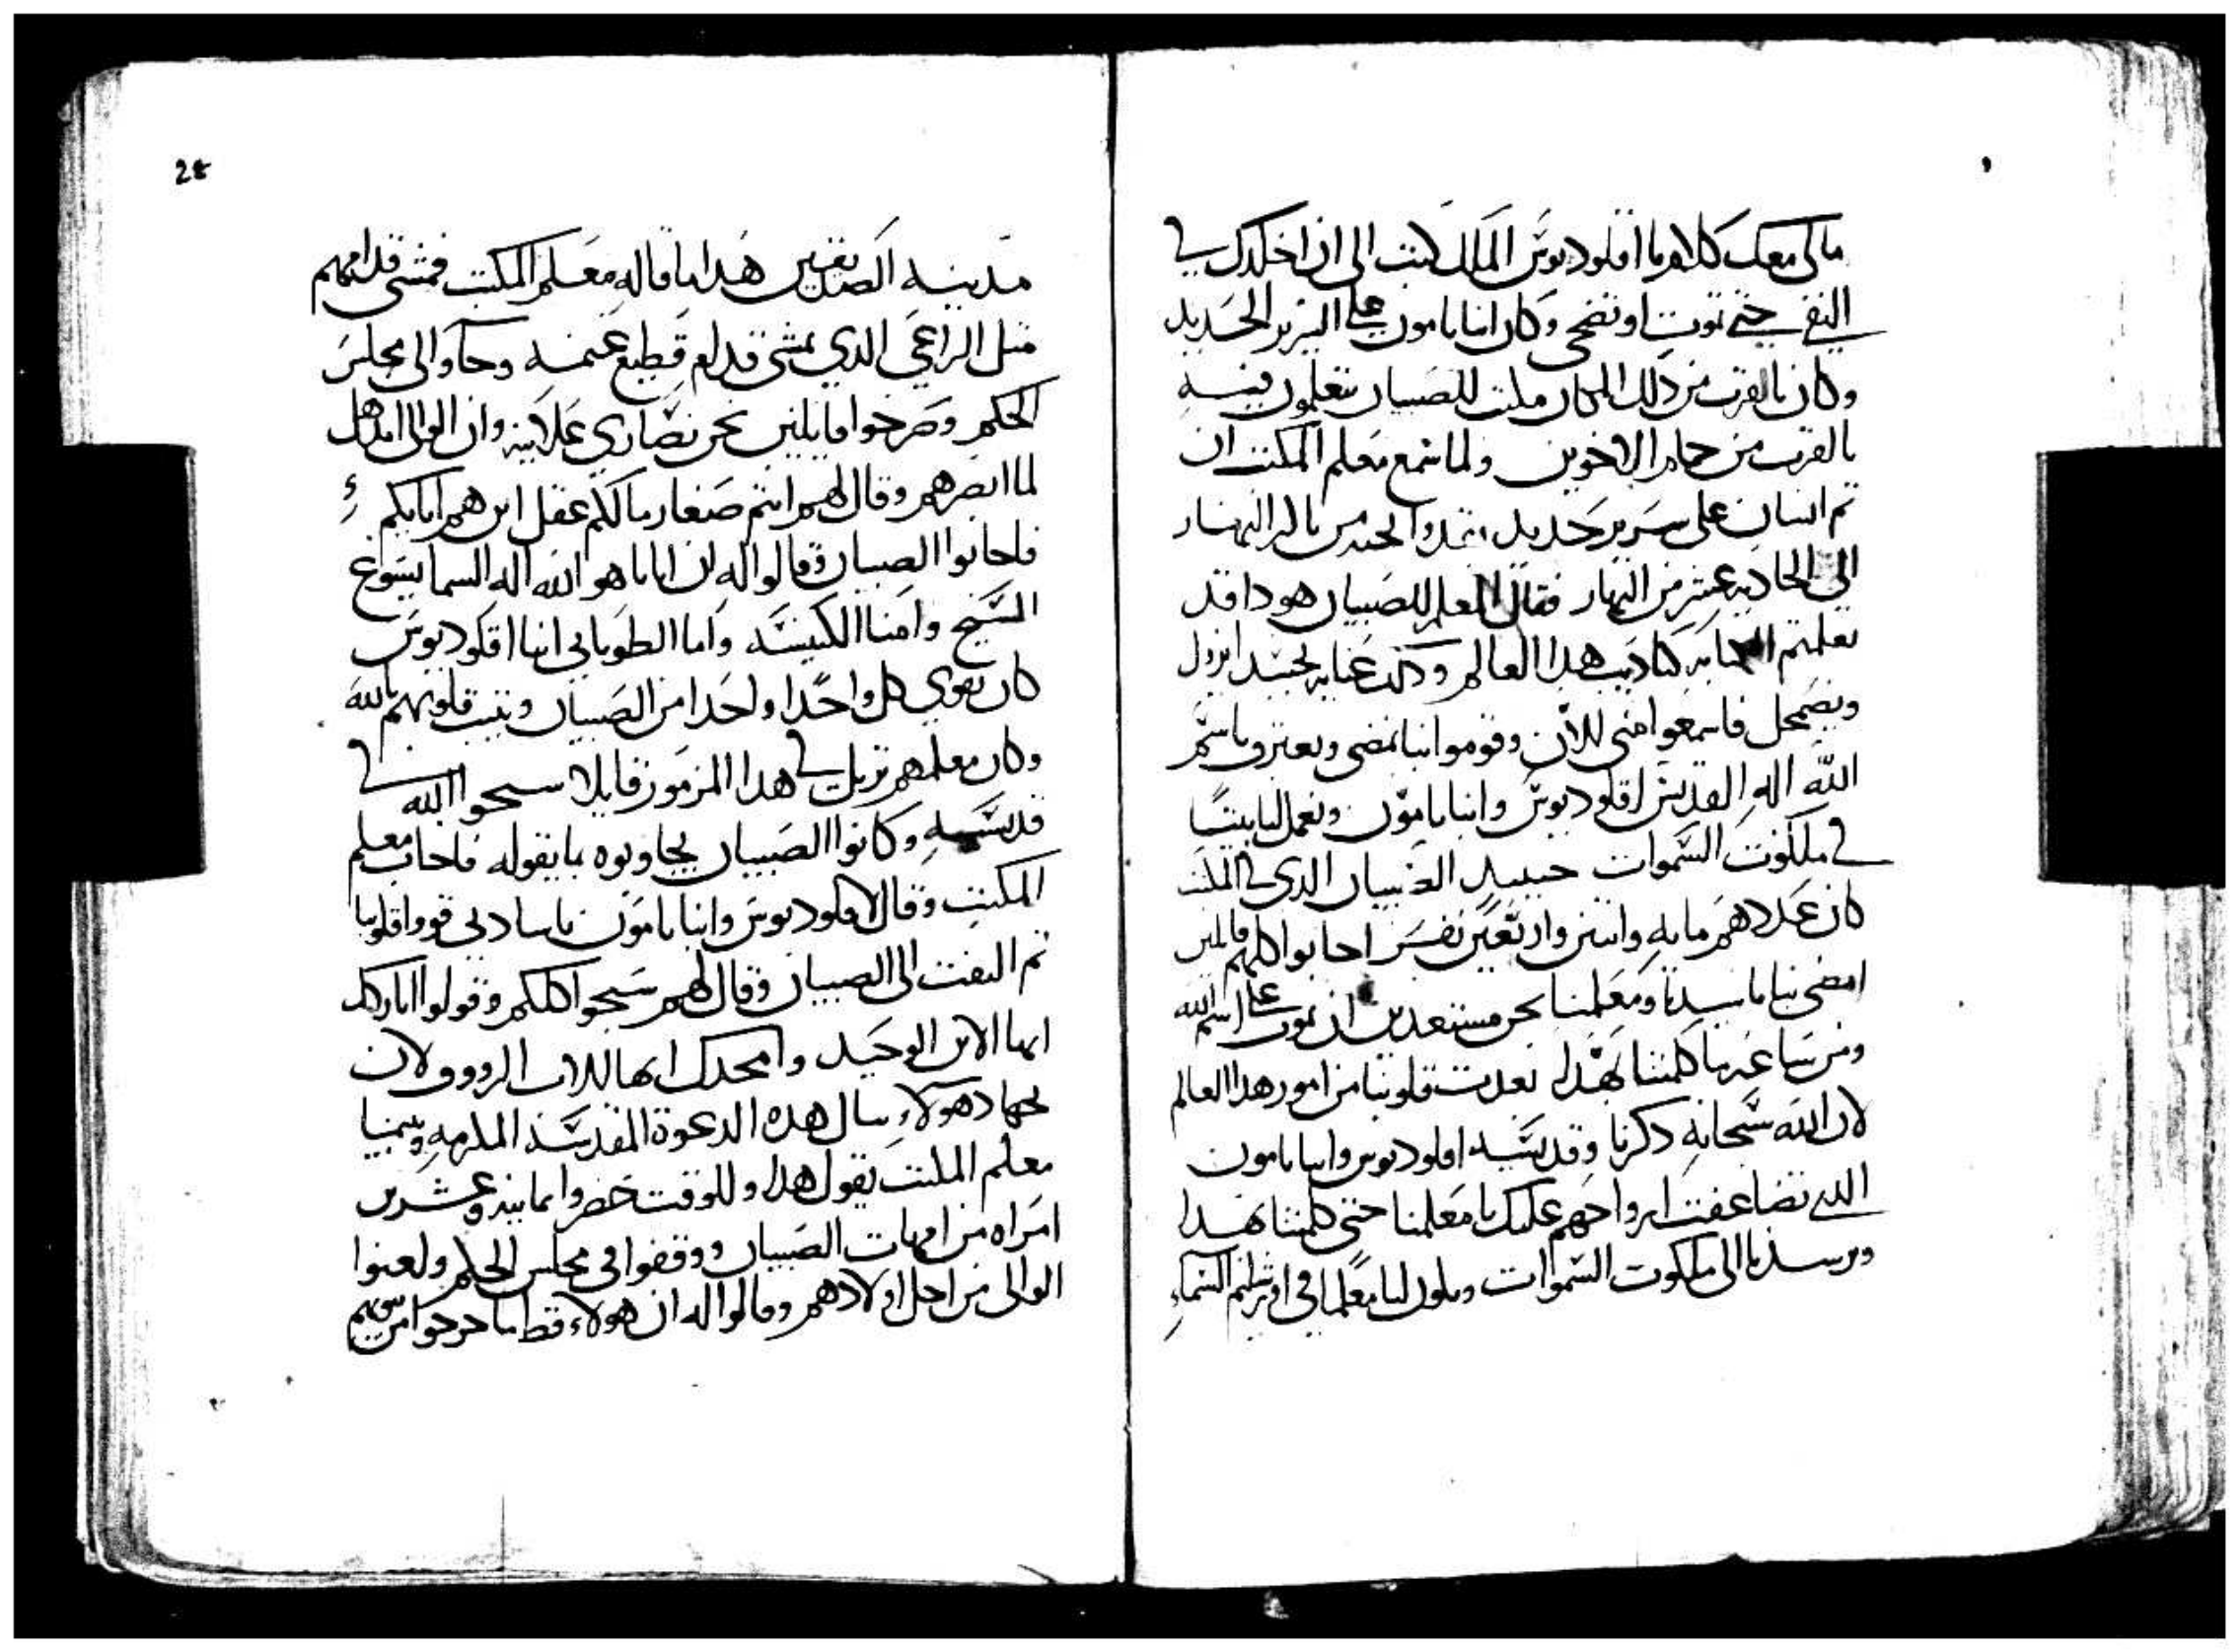 مالى معك كلام يا اقلوديوس الملك كتب الى ان اخلدك في
النفى حتى تموت او تضحى وكان انبا بامون على السرير الحديد
وكان بالقرب من ذلك المكان مكتب للصبيان يتعلمون فيه
بالقرب من حمام الاخوين ولما سمع معلم المكتب ان
ثم انسان على سرير حديد من باكر النهار
الى الحاديه عشر من النهار فقال المعلم للصبيان هودا قد
تعلمتم هدا العالم يزول
ويضمحل فاسمعوا منى للان وقوموا بنا نمضى ونعترف باسم
الله اله القديس اقلوديوس وانبا بامون ونعمل لنا بيتا
في ملكوت السموات حينيد الصبيان الدي في المكتب
كان عددهم مايه واتنين واربعين نفس اجابوا كلهم قايلين
امضى بنا يا سيدنا ومعلمنا نحن مستعدين ان نموت على اسم الله
ومن ساعة ما كلمتنا بهدا بعدت قلوبنا من امور هدا العالم
لان الله سبحانه دكرنا وقديسيه اقلوديوس وانبا بامون
الدي تضاعفت ارواحهم عليك يا معلمنا حتى كلمتنا بهدا
وترشدنا الى ملكوت السموات وتكون لنا معلما في اورشليم السماء
25
مدينه الصديقين هدا ما قاله معلم المكتب فمشى قدامهم
متل الراعي الدي يمشى قدام قطيع غنمه وجاوا الى مجلس
الحكم وصرخوا قايلين نحن نصاري علانيه وان الوالى اندهل
لما ابصرهم وقال لهم انتم صغار مالكم عقل اين هم اباايكم
فاجابوا الصبيان وقالوا له ان ابانا هو الله اله السما يسوع
المسيح وامنا الكنيسه واما الطوباني انبا اقلوديوس
كان يقوي كل واحدا واحدا من الصبيان ويتبت قلوبهم بالله
وكان معلمهم يرتل في هدا المزمور قايلا سبحوا الله في
قديسيه وكانوا الصبيان يجاوبوه بما يقوله فاجاب معلم
المكتب وقال لاقلوديوس وانبا بامون يا سادتي قووا قلوبنا
تم التفت الى الصبيان وقال لهم سبحوا كلكم وقولوا اباركك
ايها الابن الوحيد وامجدك ايها الاب الرووف لان
بجهاد هولاء ننال هده الدعوة المقدسه المكرمه وبينما
معلم المكتب يقول هدا وللوقت حضروا تمانيه وعشرين
امراه من امهات الصبيان ووقفوا في مجلس الحكم ولعنوا
الوالى من اجل اولادهم وقالوا له ان هولاء قط ما خرجوا من بيوتهم